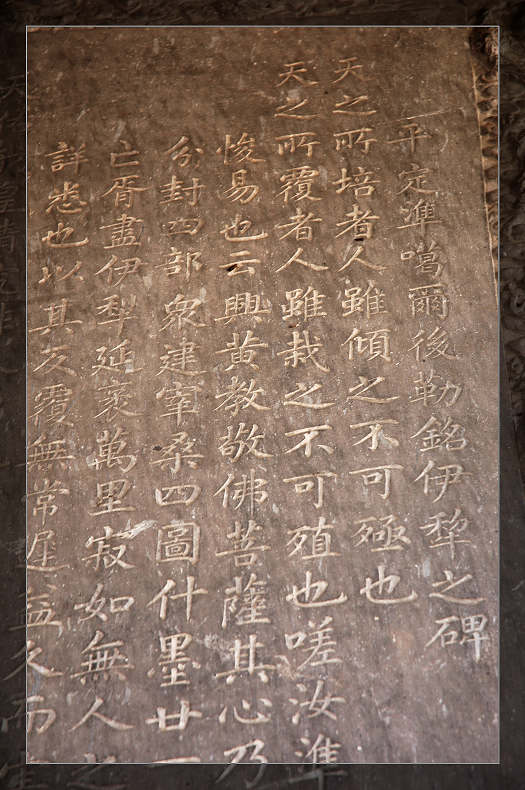 平定準噶爾後勒銘伊犂之碑
天之所培者人雖傾之不可殛也
天之所覆者人雖栽之不可殖也嗟汝準
悛易也云興黃教敬佛菩薩其心乃
分封四部衆建宰桑四圖什墨廿一
亡胥盡伊犂延袤萬里寂如無人之
詳悉也以其反覆無常遲益久而